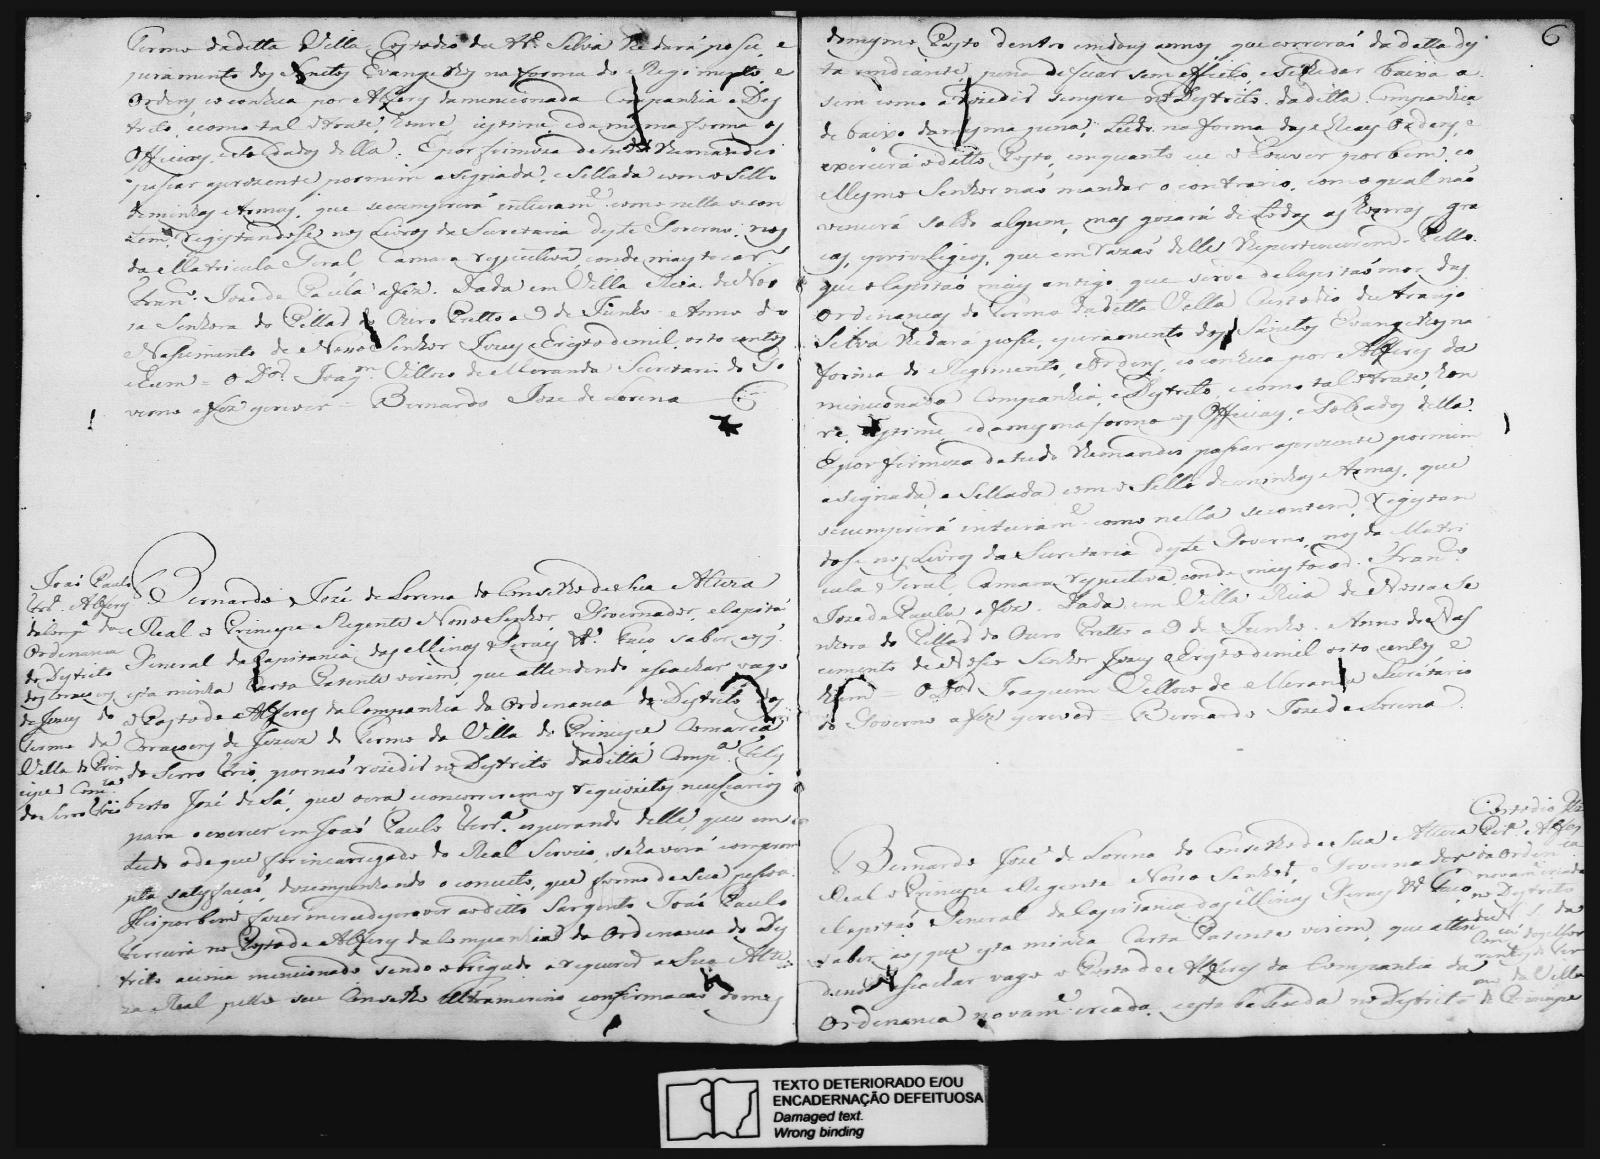 termo da ditta Villa Custodio de Ar.º Silva lhe dará posse, e
juramento dos Santos Evangelhos na forma do Regimento, e
Ordens, e o conheça por Alferes da mencionada Companhia e Des
tricto, e como tal o trate, honre, e estime, e da mesma forma os
Officiaes, e Soldados della. E por firmeza de tudo lhe mandei
passar a prezente por mim asignada, e Sellada com o Sello
de minhas Armas, que se cumprirá inteiram.e como nella se con
tem, registandose nos Livros da Secretaria deste Governo, nos
da Matricula Geral, Camara respectiva, e onde mais tocar.
Fran.co Joze de Paula a fez. Dada em Villa Rica de Nos
sa Senhora do Pillar do Ouro Pretto a 9 de Junho. Anno do
Nascimento de Nosso Senhor Jesus Christo de mil, oito centos
e hum = O D.or Joaq.m Velloso de Miranda Secretario do Go
verno a fez escrever = Bernardo Joze de Lorena
João Paulo
Ferr.ª Alferes
da Comp.ª da
Ordenança
do Destricto
dos Correntes
de Jesus do
Termo da
Villa do Prin
cipe Com.ca
do Serro frio
Bernardo Jozé de Lorena do Conselho de Sua Alteza
Real o Principe Regente Nosso Senhor, Governador, e Capitão
General da Capitania das Minas Geraes &.ª Faço saber aos q.
esta minha Carta Patente virem, que attendendo a se achar vago
o Posto de Alferes da Companhia da Ordenança do Destricto dos
Correntes de Jezus do Termo da Villa do Principe Comarca
do Serro frio, por não rezedir no Destricto da ditta Comp.ª Feliz
berto José de Sá, que era e concorrerem os requizitos necessarios
para o exercer em João Paulo Ferr.ª esperando delle, que em
tudo o de que for incarregado do Real Serviço, se haverá com prom
pta satisfação, dezempenhando o conceito, que formo de sua pessoa.
Hei por bem fazer merce de prover ao ditto Sargento João Paulo
Ferreira no Posto de Alferes da Companhia da Ordenança do Des
tricto acima mencionado sendo obrigado a requerer a Sua Alte
za Real pello seu Conselho Ultramarino confirmação do mes
6
do mesmo Posto dentro em dous annos, que correrão da data des
ta em diante, pena de ficar sem effeito, e se lhe dar baixa a
sim como a rezedir sempre no Destricto da ditta Companhia
de baixo da mesma pena, tudo na forma das Reaes Ordens, e
exercerá o ditto Posto, em quanto eu o houver por bem, e o
Mesmo Senhor não mandar o contrario, com o qual não
vencerá soldo algum, mas gozará de todas as honras, gra
ças, e privilegios, que em razão delle lhe pertencerem. Pello
que o Capitão mais antigo que serve de Capitão mor das
Ordenanças do Termo da ditta Villa Custodio de Araujo
Silva lhe dará posse, e juramento dos Santos Evangelhos na
forma do Regimento, e Ordens, e o conheça por Alferes da
mencionada Companhia, e Destricto, e como tal o trate, hon
re, e estime, e da mesma forma os Officiaes, e Soldados della.
E por firmeza de tudo lhe mandei passar a prezente por mim
asignada, e Sellada com o Sello de minhas Armas, que
se cumprirá inteiram.e como nella se contem, registan
dose nos Livros da Secretaria deste Governo, nos da Matri
cula Geral, Camara respectiva, e onde mais tocar. Fran.co
Joze de Paula a fez. Dada em Villa Rica de Nossa Se
nhora do Pillar do Ouro Pretto a 9 de Junho. Anno do Nas
cimento de Nosso Senhor Jesus Christo de mil oito centos e
hum = O D.or Joaquim Velloso de Miranda Secretario
do Governo a fez escrever = Bernardo Joze de Lorena
Custodio
Per.ª Alferes
da Ordenança
novam.e criada
no Destricto
de N. S. da
dos Cor
rentes do Ter
mo da Villa
do Principe
Bernardo Jozé de Lorena do Conselho de Sua Alteza
Real o Principe Regente Nosso Senhor, Governador
e Capitão General da Capitania das Minas Geraes &.ª Faço
saber aos que esta minha Carta Patente virem, que atten
dendo a se achar vago o Posto de Alferes da Companhia da
Ordenança novam.e creada, e estabelecida no Destricto
TEXTO DETERIORADO E/OU
ENCADERNAÇÃO DEFEITUOSA
Damaged text.
Wrong binding